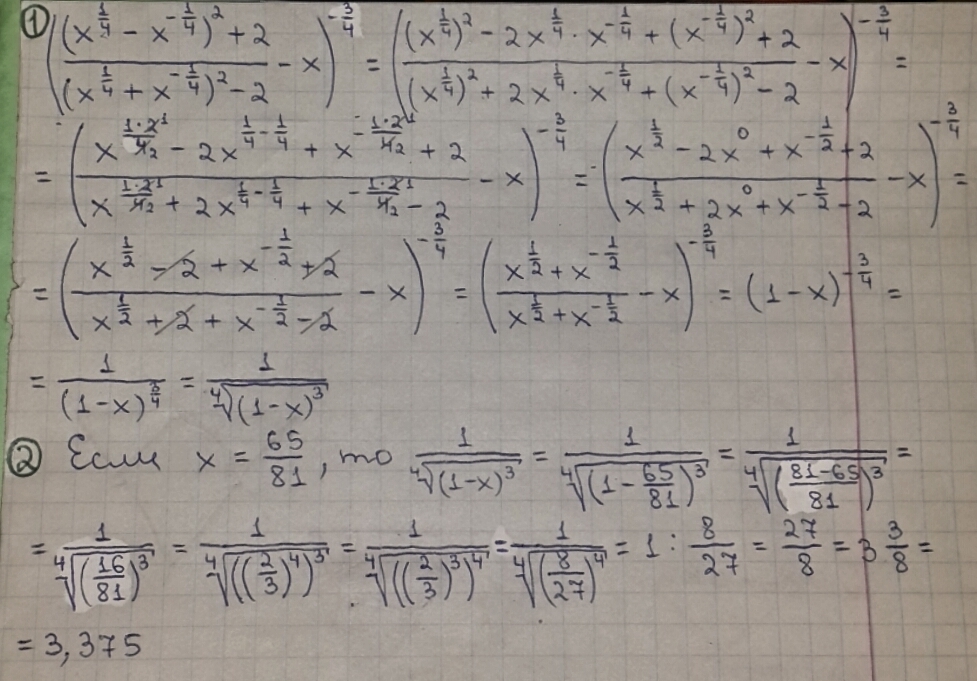 ① (((x^{1/4} − x^{−1/4})² + 2)/((x^{1/4} + x^{−1/4})² − 2) − x)^{−3/4} = (((x^{1/4})² − 2x^{1/4} · x^{−1/4} + (x^{−1/4})² + 2)/((x^{1/4})² + 2x^{1/4} · x^{−1/4} + (x^{−1/4})² − 2) − x)^{−3/4} =
= ((x^{1·2/4} − 2x^{1/4−1/4} + x^{−1·2/4} + 2)/(x^{1·2/4} + 2x^{1/4−1/4} + x^{−1·2/4} − 2) − x)^{−3/4} = ((x^{1/2} − 2x⁰ + x^{−1/2} + 2)/(x^{1/2} + 2x⁰ + x^{−1/2} − 2) − x)^{−3/4} =
= ((x^{1/2} − 2 + x^{−1/2} + 2)/(x^{1/2} + 2 + x^{−1/2} − 2) − x)^{−3/4} = ((x^{1/2} + x^{−1/2})/(x^{1/2} + x^{−1/2}) − x)^{−3/4} = (1 − x)^{−3/4} =
= 1/(1−x)^{3/4} = 1/⁴√((1−x)³)
② Если x = 65/81, то 1/⁴√((1−x)³) = 1/⁴√((1 − 65/81)³) = 1/⁴√(((81−65)/81)³) =
= 1/⁴√((16/81)³) = 1/⁴√(((2/3)⁴)³) = 1/⁴√(((2/3)³)⁴) = 1/⁴√((8/27)⁴) = 1 : 8/27 = 27/8 = 3 3/8 =
= 3,375